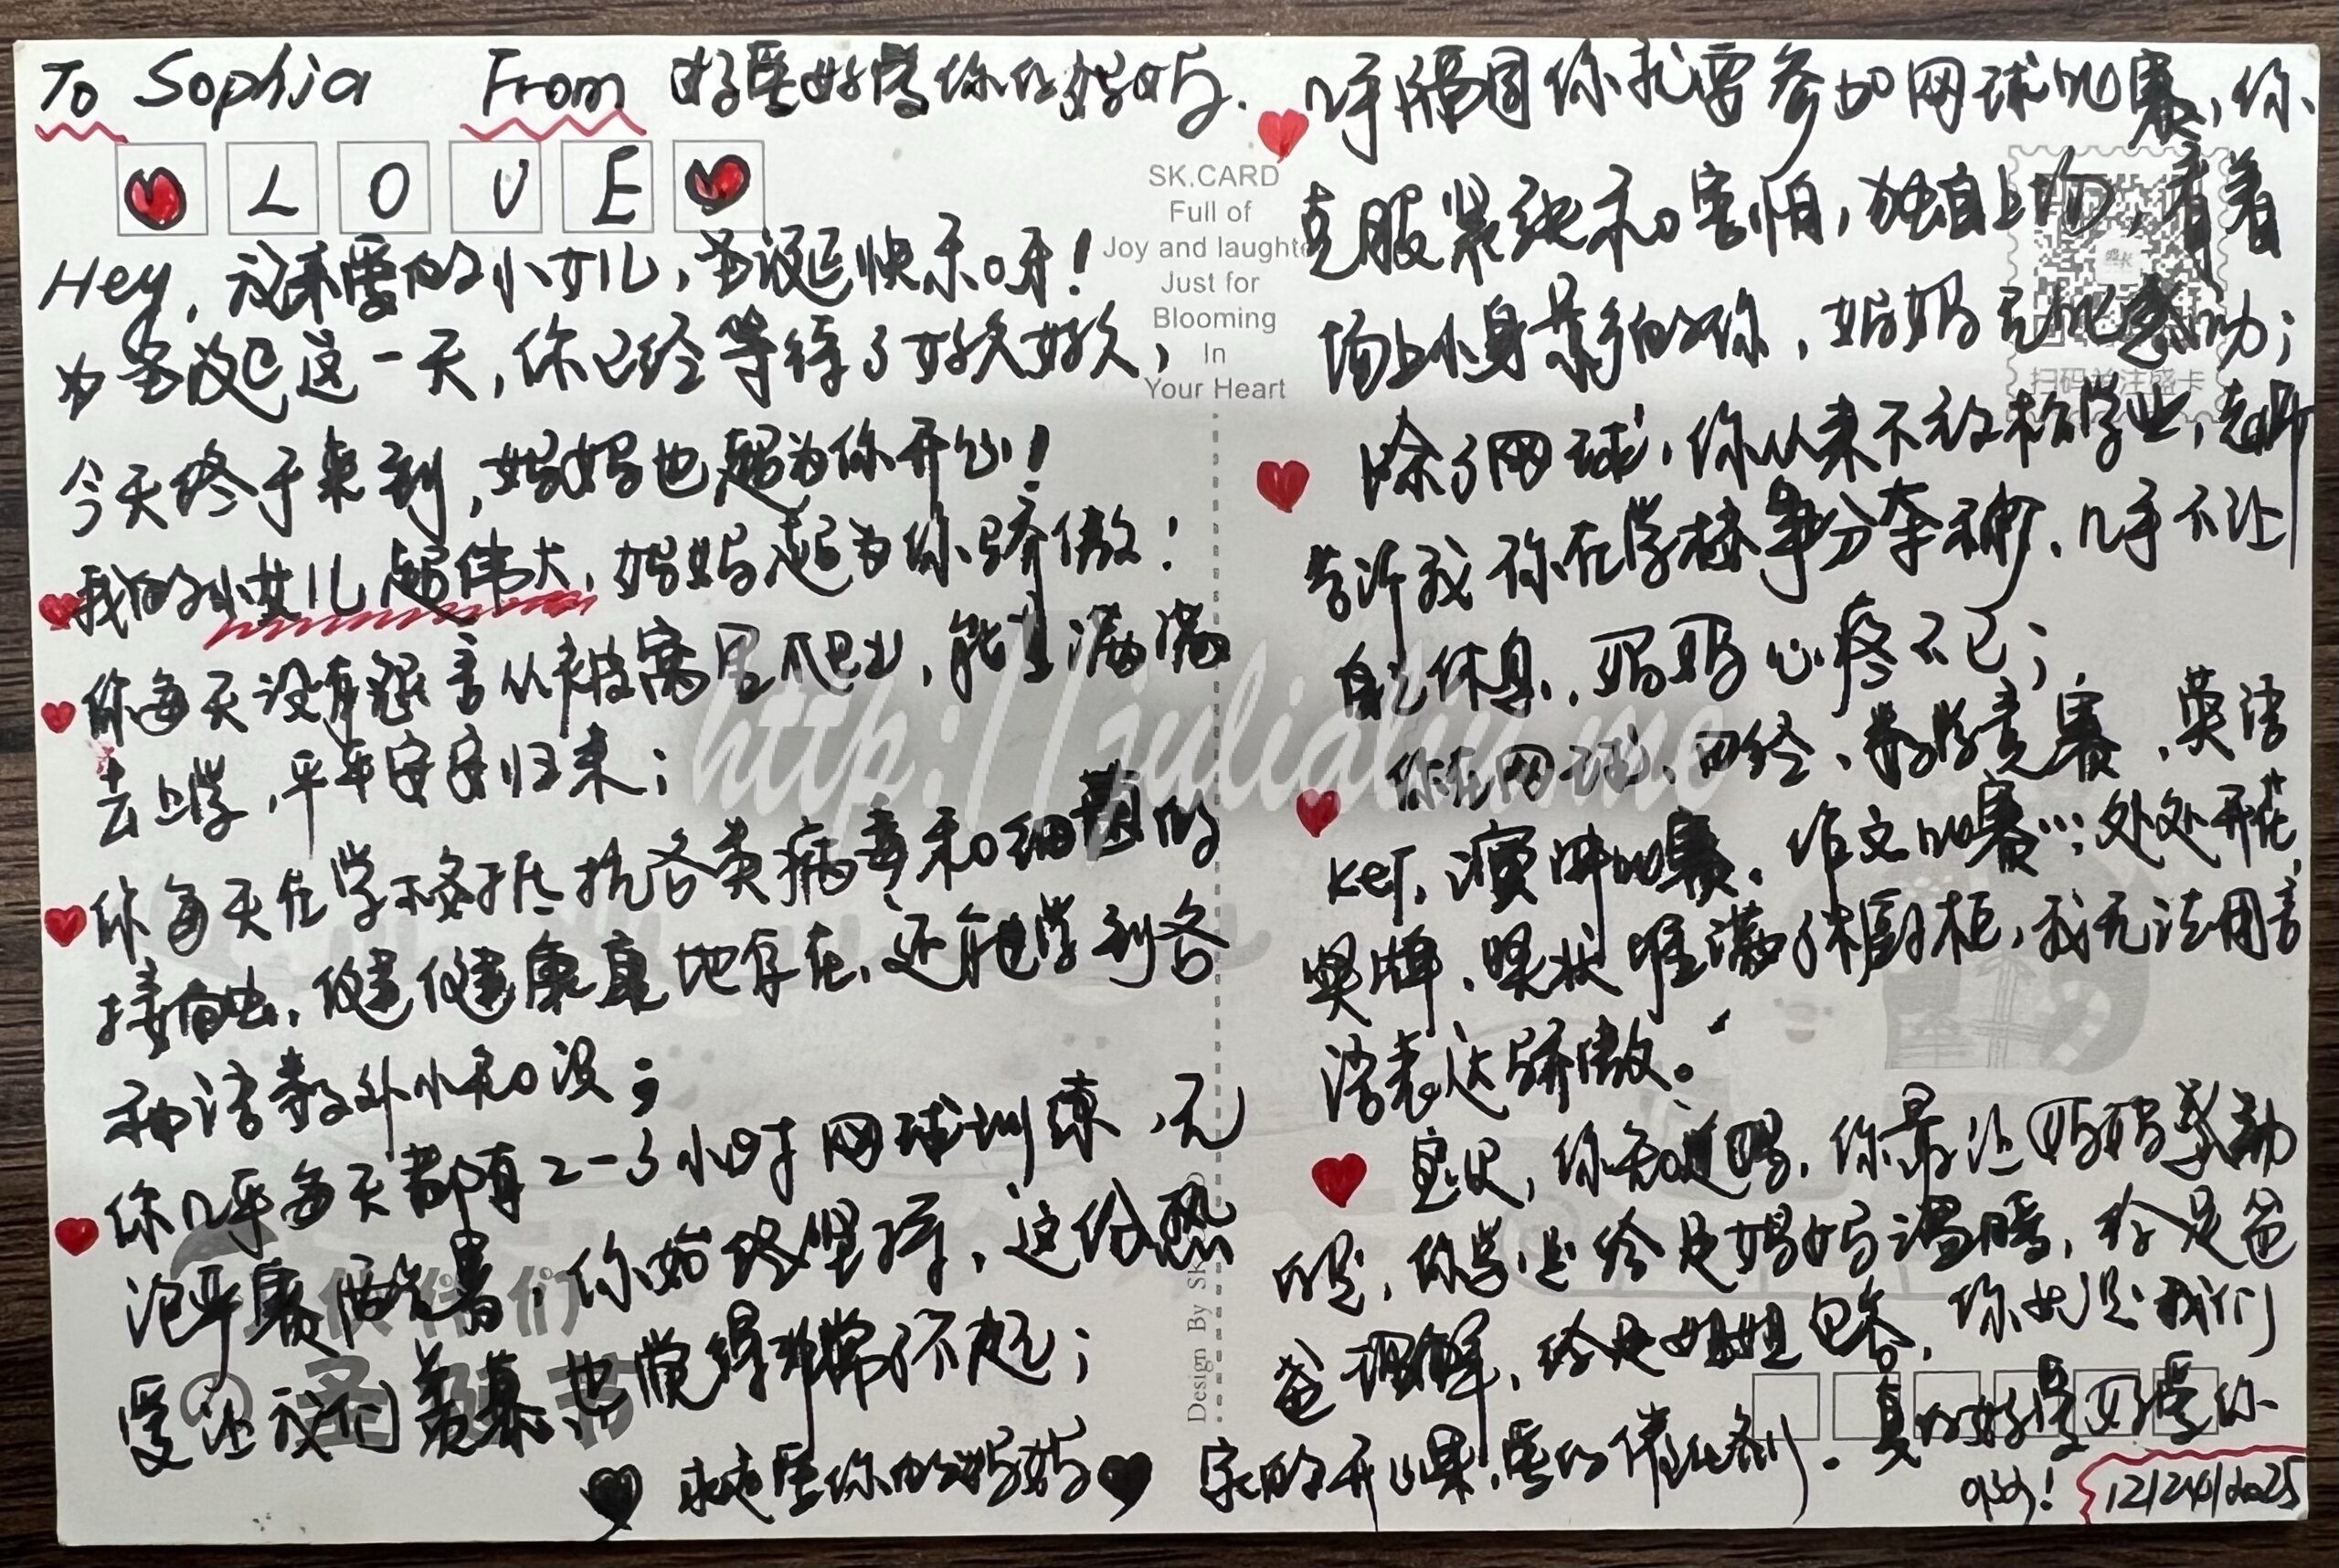 To Sophia From 好爱好爱你的妈妈.
LOVE
Hey, 亲爱的小女儿, 圣诞快乐呀!
为圣诞这一天, 你已经等待了好久好久,
今天终于来到, 妈妈也超为你开心!
我的小女儿超伟大, 妈妈超为你骄傲!
你每天没有怨言从被窝里爬出, 能量满满
去上学, 平平安安归来;
你每天在学校抵抗各类病毒和细菌的
侵蚀, 健健康康地存在, 还能学到各
种课内外小知识;
你几乎每天都有2-3小时网球训练, 无
论严寒酷暑, 你始终坚持, 这份热
爱让我们羡慕, 也觉得非常了不起;
永远爱你的妈妈
SK.CARD
Full of
Joy and laughte
Just for
Blooming
In
Your Heart
Design By SK
几乎隔周你就要参加网球比赛, 你
克服紧张和害怕, 独自上场, 看着
场上小身影的你, 妈妈无比感动;
扫码关注盛卡
除了网球, 你从来不放松学业, 老师
告诉我你在学校争分夺秒, 几乎不让
自己休息, 妈妈心疼不已;
你在网球、田径、数学竞赛、英语
KET、演讲比赛、作文比赛…处处开花,
奖牌、奖状堆满了橱柜, 我无法用言
语表达骄傲。
宝贝, 你知道吗, 你最让妈妈感动
的是, 你总是给足妈妈温暖, 给足爸
爸理解, 给足姐姐包容, 你就是我们
家的开心果, 爱的催化剂。真的好爱好爱你
哟! 12/24/2025
http://julialiu.me